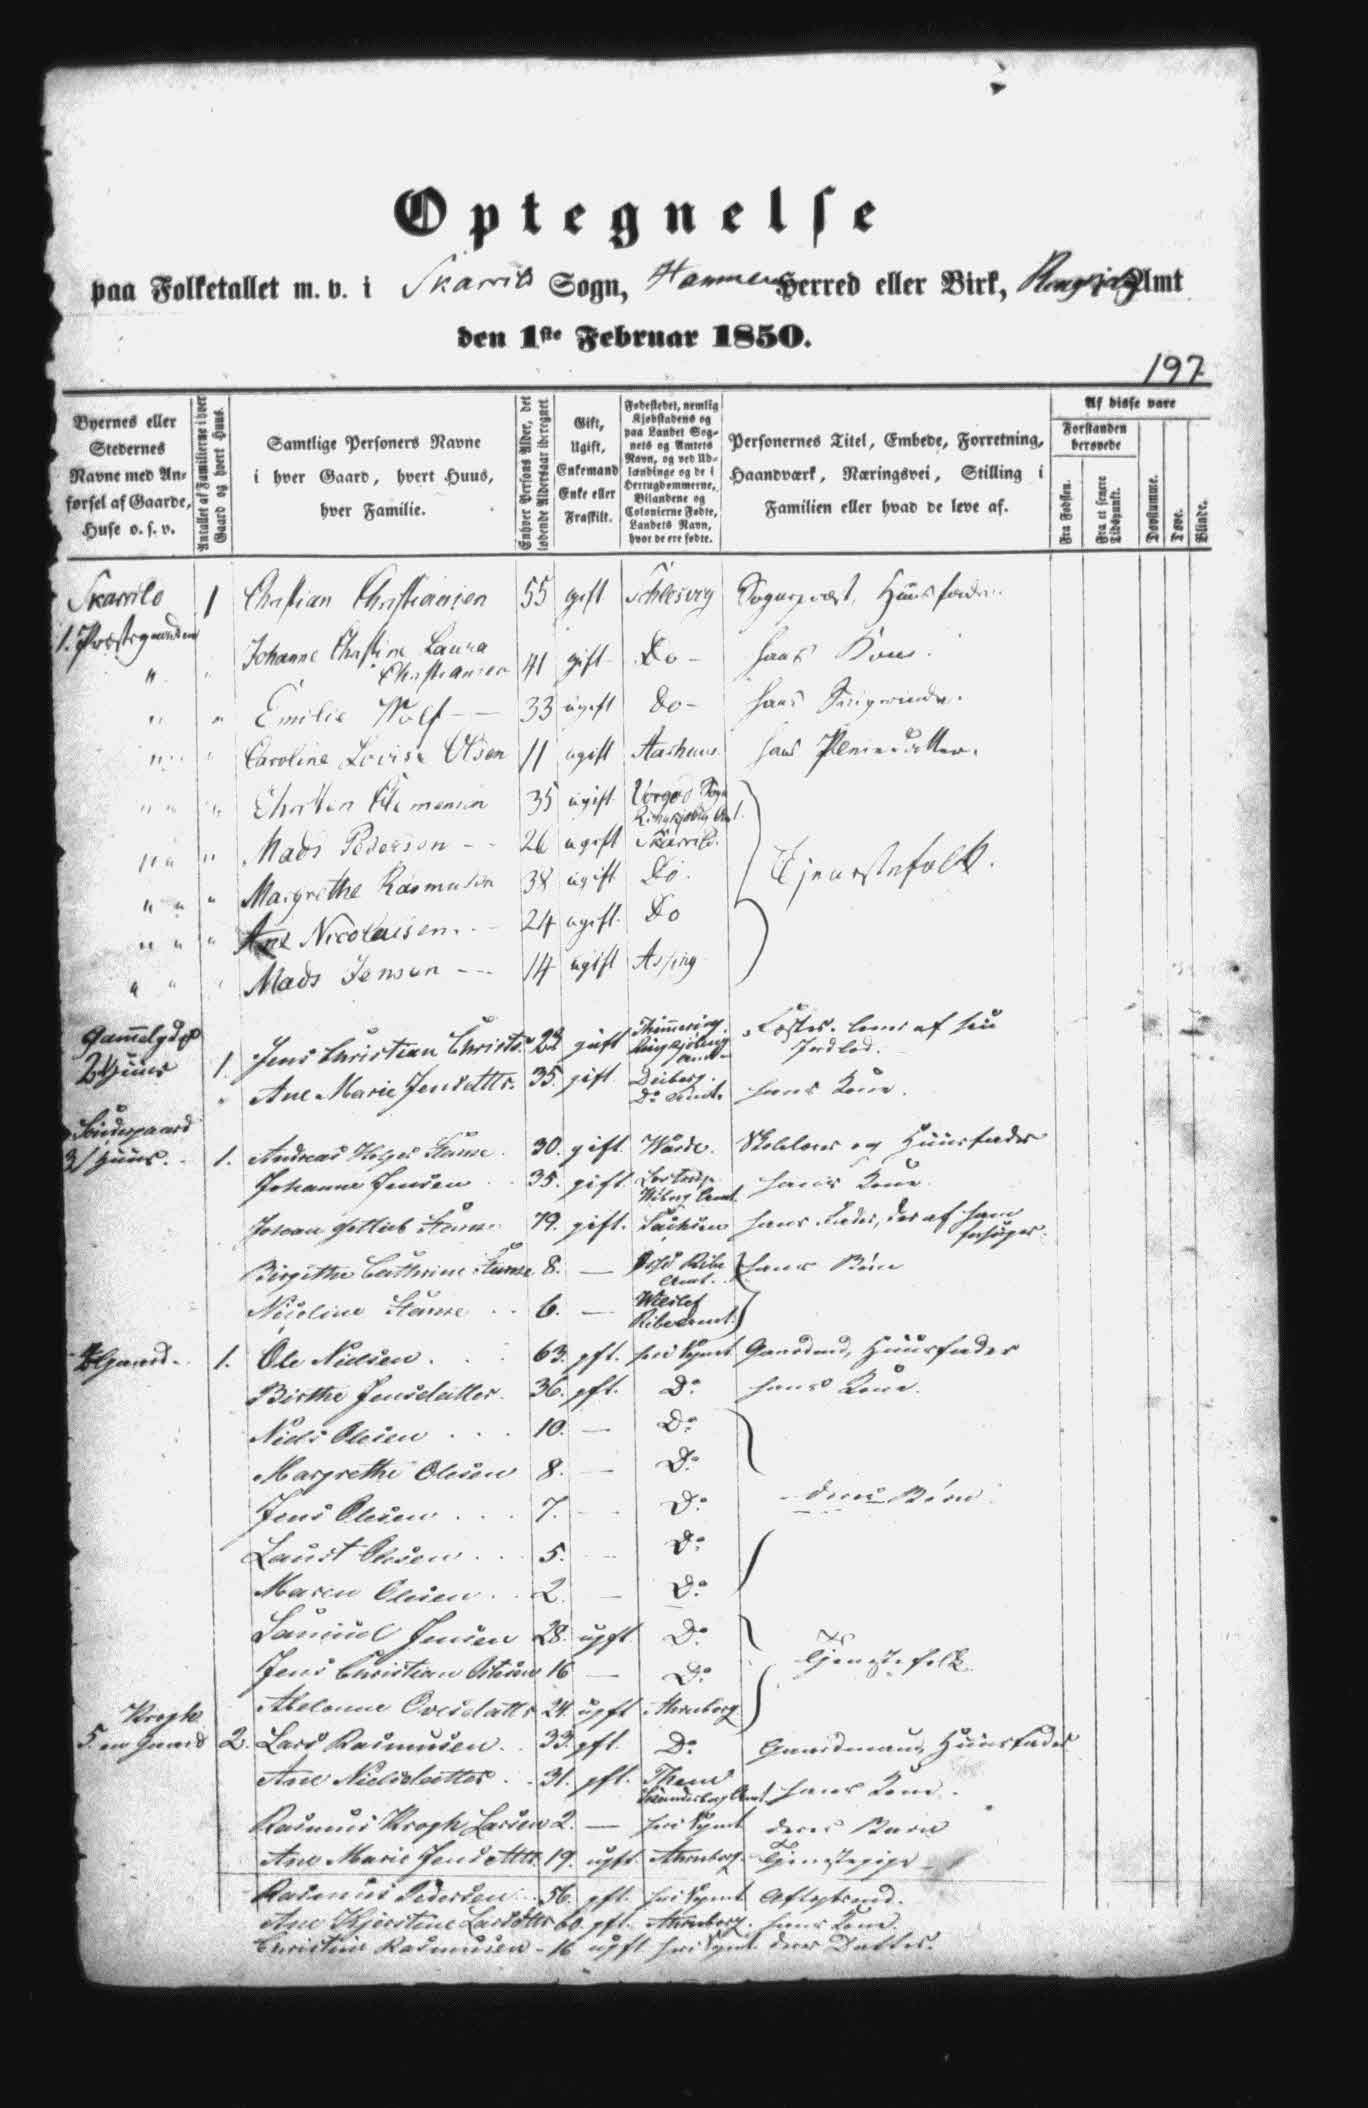 Optegnelse
paa Folketallet m. v. i Skarrild Sogn, Hammerum Herred eller Birk, Ringkjøbing Amt
den 1ste Februar 1850.
197
Byernes eller Stedernes Navne med Anførsel af Gaarde, Huse o. s. v.
Antallet af Familierne i hver Gaard og hvert Huus.
Samtlige Personers Navne i hver Gaard, hvert Huus, hver Familie.
Enhver Persons Alder, det løbende Aldersaar iberegnet
Gift, Ugift, Enkemand Enke eller Fraskilt.
Fødestedet, nemlig Kjøbstadens og paa Landet Sognets og Amtets Navn, og ved Udlændinge og de i Hertugdømmerne, Bilandene og Colonierne Fødte, Landets Navn, hvor de ere fødte.
Personernes Titel, Embede, Forretning, Haandværk, Næringsvei, Stilling i Familien eller hvad de leve af.
Af disse vare
Forstanden berøvede
Fra Fødslen.
Fra et senere Tidspunkt.
Døvstumme.
Døve.
Blinde.
Skarrild 1 Christian Christiansen 55 gift Schlesvig Sognepræst, Huusfader
1. Præstegaarden
" " Johanne Christine Laura Christiansen 41 gift Do hans Kone
" " Emilie Wolf 33 ugift Do hans
" " Caroline Lovise Olsen 11 ugift Aarhuus hans Pleiedatter.
" " " Christen Clemensen 35 ugift Vorgod Sogn Ringkjøbing Amt
" " " Mads Pedersen 26 ugift Skarrild
" " " Margrethe Rasmusen 38 ugift Do. Tjenestefolk.
" " " Ane Nicolaisen 24 ugift Do
" " " Mads Jensen 14 ugift Asping
2 Huus 1. Jens Christian Christ. gift Ringkjøbing Amt af sin Indlod.
" Ane Marie Jensdttr. 35. gift Deiberg Do Amt. hans Kone.
Sindinggaard
3/ Huus. 1. Andreas 30. gift. Warde. Huusfader
Johanne Jensen 35. gift. Wiborg Amt. hans Kone
Johan Gottlieb 79. gift. Sachsen hans Fader, der af ham forsørges.
Birgithe Cathrine 8. — Ribe Amt. hans Børn
Nicoline 6. — Ribe Amt.
4 Gaard. 1. Ole Nielsen 63. gft. her i Sognet Gaardmd, Huusfader
Birthe Jensdatter 36. gft. Do hans Kone.
Niels Olesen 10. — Do
Margrethe Olesen 8. — Do
Jens Olesen 7. — Do deres Børn
Laust Olesen 5. — Do
Maren Olesen 2. — Do
Jensen 28. ugift Do Tjenestefolk
Jens Christian 16 — Do
Abelonne Ovesdattr 24. ugift Ahrnborg
Krogh
5. en Gaard 2. Lars Rasmusen 33. gft. Do Gaardmand, Huusfader
Ane Nielsdatter 31. gft. Them Skanderborg Amt hans Kone.
Rasmus Krogh Larsen 2. — her i Sognet deres Barn
Ane Marie Jensdttr. 19. ugft. Ahrnborg. Tjenestepige
Rasmus Pedersen 56. gft. her i Sognet Aftægtsmd.
Ane Kjerstine Larsdttr 60. gft. Ahrnborg. hans Kone.
Christine Rasmusen 16 ugft her i Sognet deres Datter.